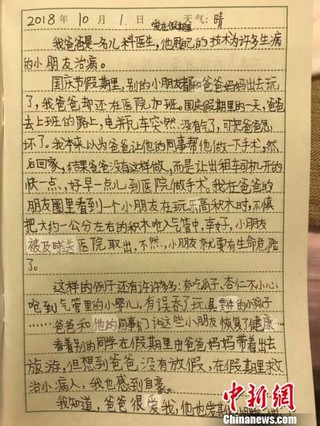 2018年 10月 1日 天气:晴
爱在假期里
我爸爸是一名儿科医生,他用自己的技术为许多生病
的小朋友治病。
国庆节假期里,别的小朋友都和爸爸妈妈出去玩
了,我爸爸却还在医院加班。国庆假期里的一天,爸爸
去上班的路上,电瓶车突然没有气了,可把爸爸急
坏了。我本来以为爸爸让他的同事帮他做一下手术,然
后回家,结果爸爸没有这样做,而是让出租车司机开的
快一点,好早一点儿到医院做手术。我在爸爸的
朋友圈里看到一个小朋友在玩乐高积木时,不慎
把大约一公分左右的积木呛入气管中,幸好,小朋友
被及时送医院取出,不然,小朋友就要有生命危险
了。
这样的例子还有许许多多:有吃瓜子、杏仁不小心
呛到气管里的小婴儿,有误吞了玩具零件的小孩子
……爸爸和他的同事们让这些小朋友恢复了健康。
看着别的同学在假期里由爸爸妈妈带着出去
旅游,但想到爸爸没有放假,在假期里救
治小病人,我也感到自豪。
我知道,爸爸很爱我,他也爱
中新网